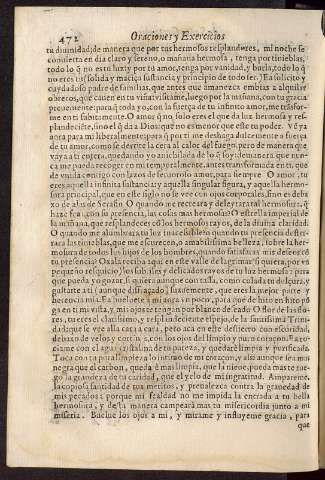 472 Oraciones y Exercicios
tu divinidad; de manera que por tus hermosos resplandores, mi noche se
convierta en dia claro y sereno, o mañana hermosa, tenga por tinieblas,
todo lo q̃ no es tu luz; y por tu amor, tenga por vanidad, y burla, todo lo q̃
no eres tu (solida y maciça sustancia y principio de todo ser.) Ea solicito y
cuydadoso padre de familias, que antes que amanezca embias a alquilar
obreros, que caven en tu viña: visitame, luego por la mañana, con tu gracia
para toda yo, con la fuerça de tu infinito amor, me transfor-
me en ti sabitamente. O amor q̃ no, solo eres el que da luz hermosa y res-
plandeciente, sino el q̃ da a Dios: que no es menor que este tu poder. Ve ya
aora para mi liberalmente: para q̃ por ti me deshaga dulcemente a fuerça
de tu amor, como se derrite la cera al calor del fuego: pero de manera que
vaya a ti
me pueda recoger en mi temporalmente, antes transformada en ti, que
de unida contigo con lazos de amor, para siempre. O amor, tu
eres aquella infinita sustancia y aquella singular figura, y aquella hermo-
sura principal, que en este siglo no se vee con ojos corporales, sino es deba-
xo de alas de Serafin. O quando me recreara y deleytara tal hermosura, q̃
haze fea, con su presencia, las cosas mas hermosas? O estrella imperial de
la mañana, que resplandeces cõ los hermosos rayos, de la divina claridad.
O quando me alumbrara tu luz quando tu presencia dester-
rara las tinieblas, que me escurecen, o amabilissima belleza, sobre la her-
mosura de todos los hijos de los hombres, quando satisfaras mis deseos cõ
tu presencia? Oxala reciba aqui en este valle de lagrimas si quiera, por es
pequeño resquicio, los subtiles y delicados rayos de tu luz hermosa: para
que pueda ya gozar, si quiera aunque con tassa, como colada tu dulçura, y
gustarte a ti (aunque disfraçado) suavemente, que eres la mejor parte y
herencia mia. Ea buelvete a mi aora un poco, para que de hito en hito põ
ga en ti mi vista, y mis ojos te tengan por blanco de
tu eres el clarissimo, y resplandeciente espejo, de la santissima Trini-
dad: que se vee alla cara a cara, pero aca en este desierto con escuridad,
debaxo de velos y cortinas, con los ojos del limpio y puro coraçon. Ro-
ciame con el agua cristalina de tu pureza, y quedare limpia y purificada.
Toca con tu pura limpieza lo intimo de mi coraçon, y assi aunque sea mas
negra que el carbon, quedare mas limpia, que la nieve, pueda mas te rue-
go la grandeza de tu caridad, que el yelo de mi ingratitud. Ampareme,
la copiosa santidad de tus meritos, y prevalezca contra la gravedad de
mis pecados: porque mi fealdad no me impida la entrada a tu bella
hermosura, y de la manera campeará mas tu misericordia junto a mi
miseria. Buelve los ojos a mi, y mirame y influyeme gracia, para
que